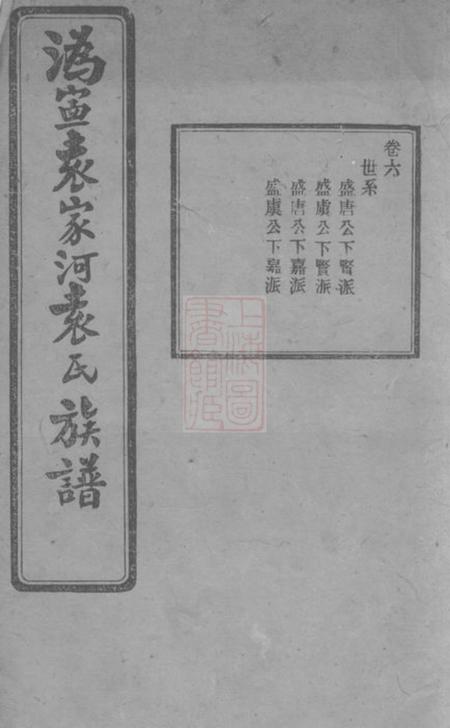 卷六
世系
盛唐公下賢派
盛虞公下賢派
盛唐公下嘉派
盛虞公下嘉派
上海圖
書館藏
溈寍袁家河袁氏族譜